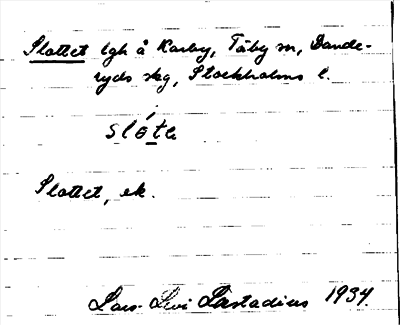 Slottet lgh å Karby, Täby sn, Dande-
ryds skg, Stockholms l.
slóta
Slottet, ek.
Lars Levi Læstadius 1934.